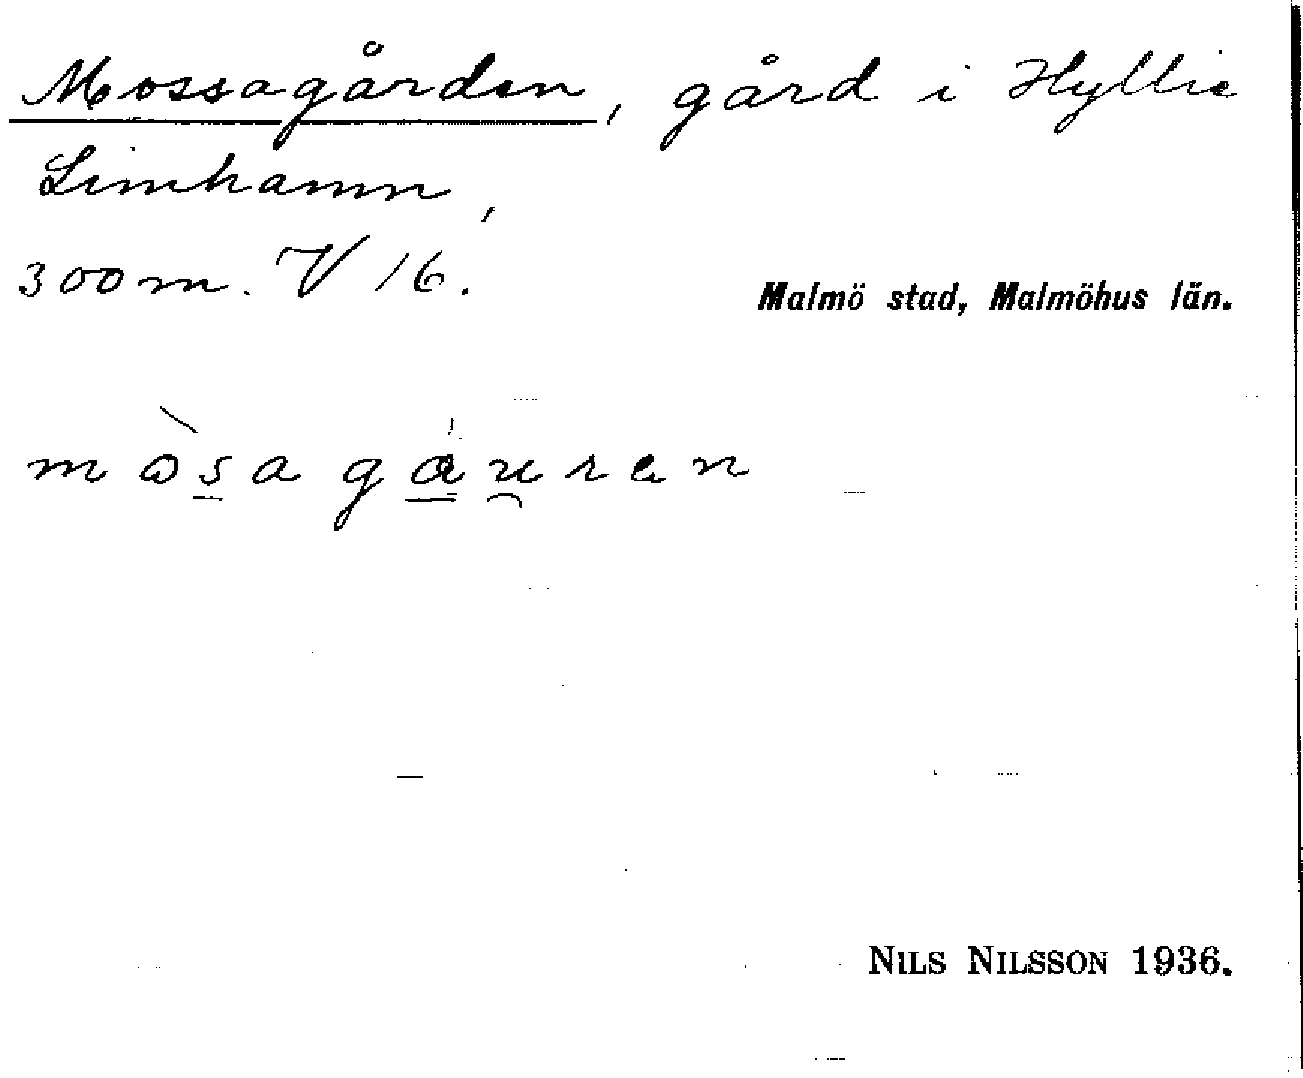 Mossagården, gård i Hyllie
Limhamn,
300 m. V 16.
Malmö stad, Malmöhus län.
mòsagáuren
NILS NILSSON 1936.